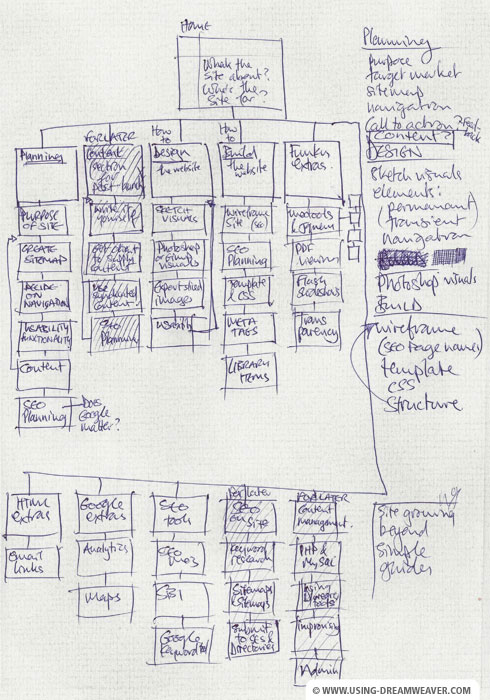 Home
What's the
site about?
Who's the
site for?
Planning
FOR LATER
Content
section for
post-launch
How to
Design
the website
How to
Build
the website
Funky
extras.
PURPOSE
OF SITE
CREATE
SITEMAP
DECIDE
ON
NAVIGATION
USABILITY
FUNCTIONALITY
Content
SEO
Planning
Does
Google
matter?
Write site
yourself
Get client
to supply
content
Use
content
SEO
Planning
SKETCH
VISUALS
Photoshop
or Gimp
visuals
Export sliced
images
Usability
Wireframe
site (SEO)
SEO
Planning
Template
& CSS
META
TAGS
LIBRARY
ITEMS
PDF
Flash
Slideshows
Trans
parency
Planning
purpose
target market
sitemap
navigation
Call to action? Feed-
back
Content?
DESIGN
Sketch visuals
elements:
permanant/
(transient
navigation
Photoshop visuals
BUILD
wireframe
(SEO page names)
template
CSS
structure
HTML
extras
email
links
Google
extras
Analytics
Maps
SEO
tools
SEO
SBI
Google
Keyword tool
FOR LATER
SEO
on Site
Keyword
research
Sitemaps
& sitemaps
Submit
to SEs &
Directories
FOR LATER
Content
management.
PHP &
MySQL
Using
Improving
Admin
Site growing
beyond
simple
guides
© WWW.USING-DREAMWEAVER.COM